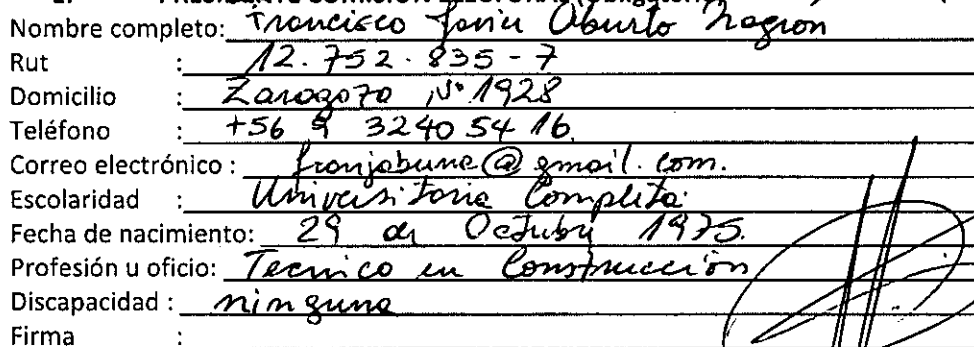 PRESIDENTE COMISIÓN ELECTORAL (Obligatorio)
Nombre completo: Francisco Javier Oburto Nagron
Rut : 12.752.835-7
Domicilio : Zaragoza N° 1928
Teléfono : +56 9 3240 54 16.
Correo electrónico : franjabuna@gmail.com.
Escolaridad : Universitaria Completa.
Fecha de nacimiento: 29 de Octubre 1975.
Profesión u oficio: Tecnico en Construcción
Discapacidad : ninguna
Firma :